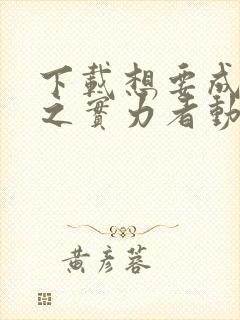 下載想要成
之實力者動
黃彥蓉